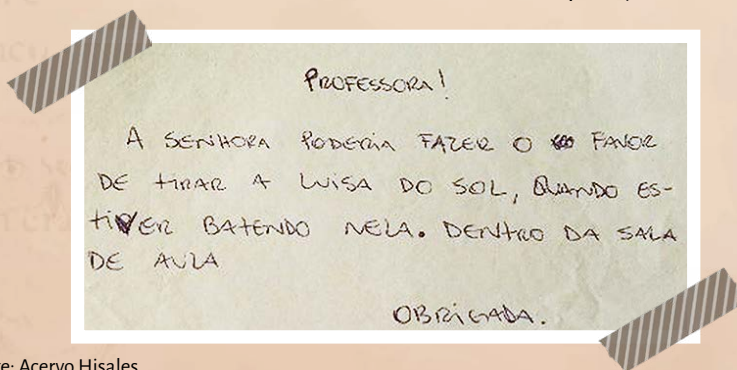 PROFESSORA!
A SENHORA PODERIA FAZER O FAVOR
DE TIRAR A LUISA DO SOL, QUANDO ES-
TIVER BATENDO NELA. DENTRO DA SALA
DE AULA
OBRIGADA.
Acervo Hisales